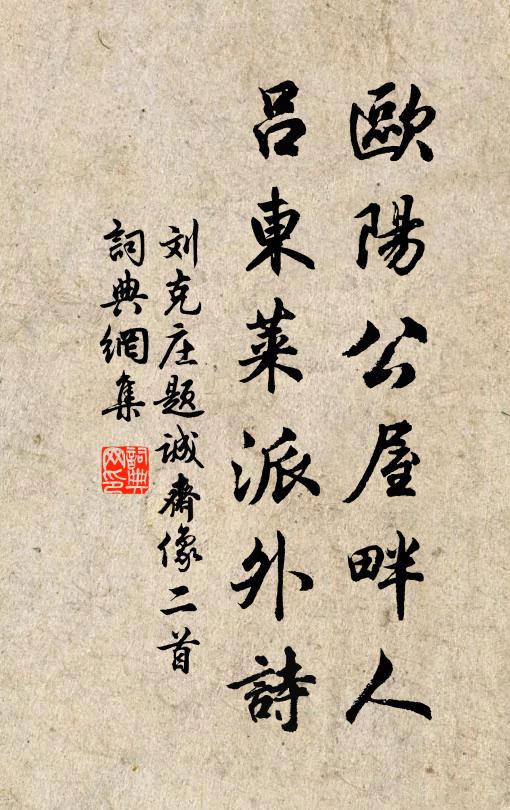 歐陽公屋畔人
呂東萊派外詩
刘克庄题诚齋像二首
詞典網集
詞典网印